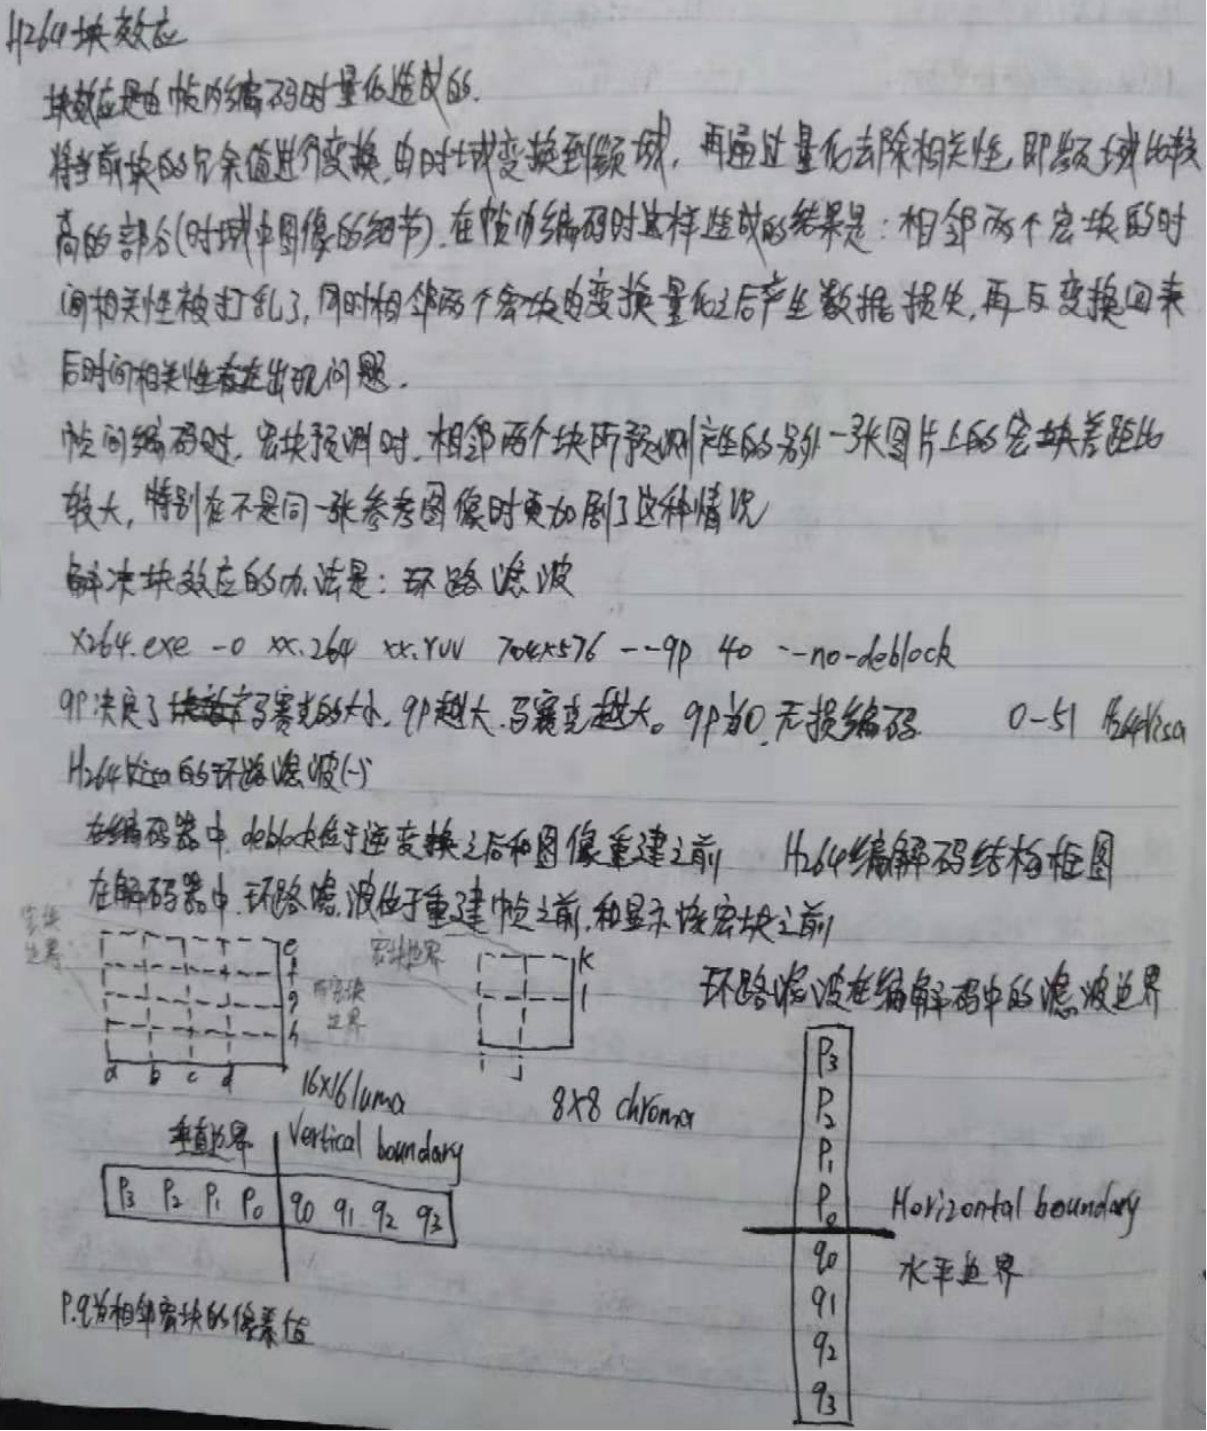 H264块效应
块效应是由帧内编码时量化造成的.
将当前块的冗余值进行变换,由时域变换到频域,再通过量化去除相关性,即频域比较
高的部分(时域中图像的细节).在帧内编码时这样造成的结果是:相邻两个宏块的时
间相关性被打乱了,同时相邻两个宏块的变换量化之后产生数据损失,再反变换回来
后时间相关性出现问题.
帧间编码时,宏块预测时,相邻两个块所预测产生的另外一张图片上的宏块差距比
较大,特别在不是同一张参考图像时更加剧了这种情况
解决块效应的办法是:环路滤波
x264.exe -o xx.264 xx.YUV 704x576 --qp 40 --no-deblock
qp决定了马赛克的大小,qp越大,马赛克越大。qp为0,无损编码. 0-51 H264Visa
H264Visa的环路滤波(一)
在编码器中,deblock位于逆变换之后和图像重建之前 H264编解码结构框图
在解码器中,环路滤波位于重建帧之前,和显示该宏块之前
宏块边界
e
f
g
h
a b c d
宏块边界
16x16 luma
宏块边界
k
l
i j
8x8 chroma
环路滤波在编解码中的滤波边界
垂直边界 Vertical boundary
P3 P2 P1 P0 q0 q1 q2 q3
P3
P2
P1
P0
Horizontal boundary
q0
水平边界
q1
q2
q3
P.q为相邻宏块的像素值